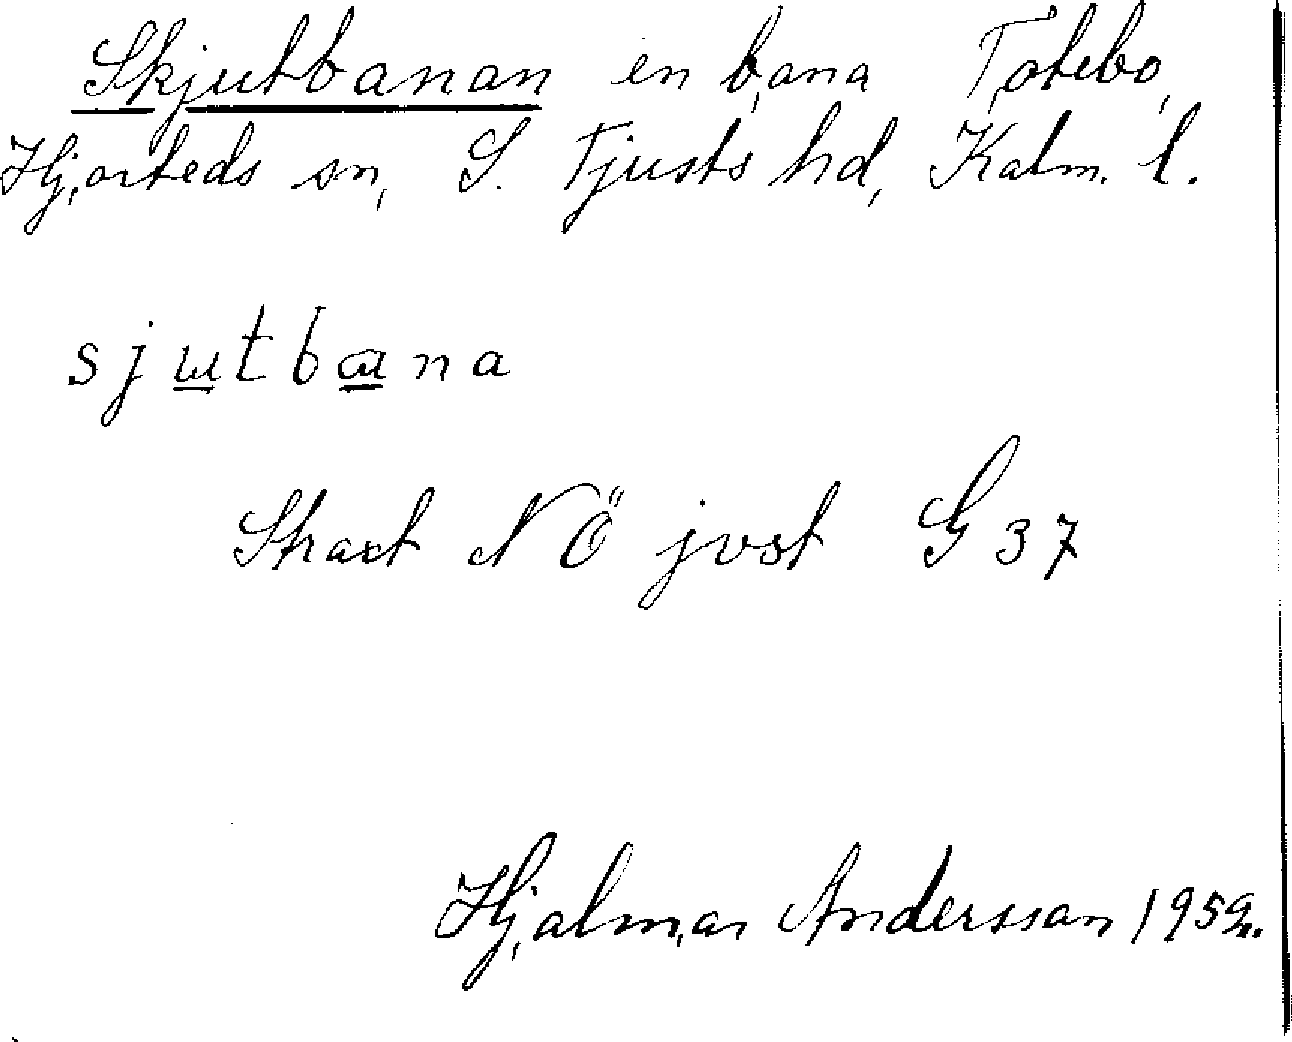 Skjutbanan en bana Totebo,
Hjorteds sn, S. Tjusts hd, Kalm. l.
sjutbana
Straxt NÖ jvst G 37
Hjalmar Andersson 1959.